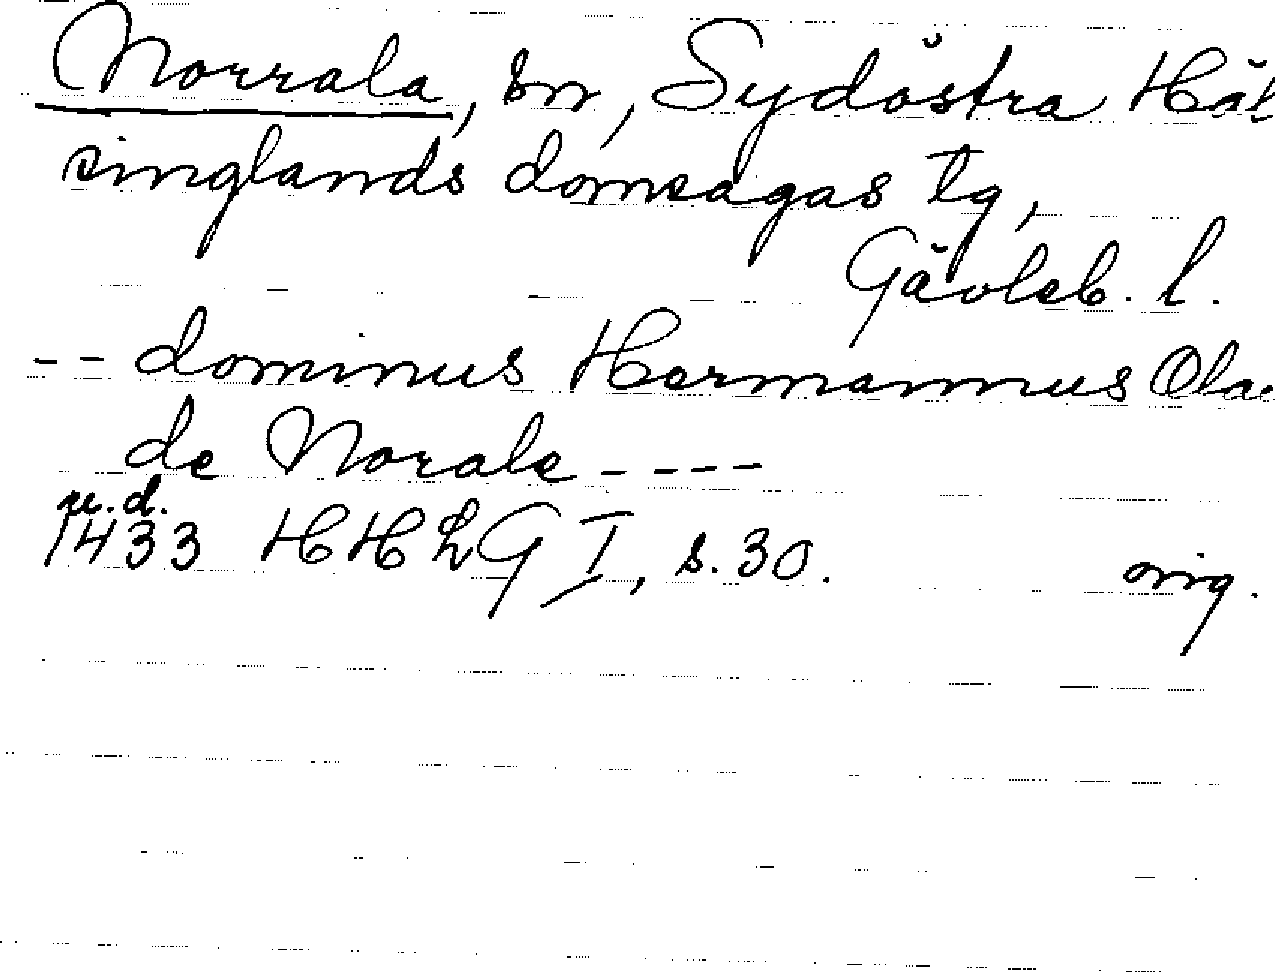 Norrala, sn, Sydöstra Häl
singlands domsagas tg,
Gävleb. l.
-- dominus Hermannus Olau
de Norale ----
u.d.
1433 HHLG I, s. 30. orig.